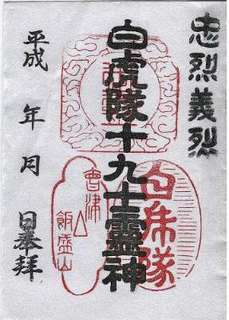 忠烈義烈
白虎隊十九士霊神
白虎隊
會津
飯盛山
平成 年 月 日奉拝